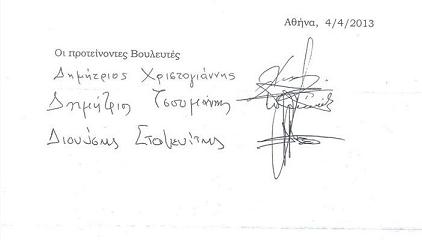 Αθήνα, 4/4/2013
Οι προτείνοντες Βουλευτές
Δημήτριος Χριστογιάννης
Δημήτριος Τσουμάνης
Διονύσης Σταμενίτης